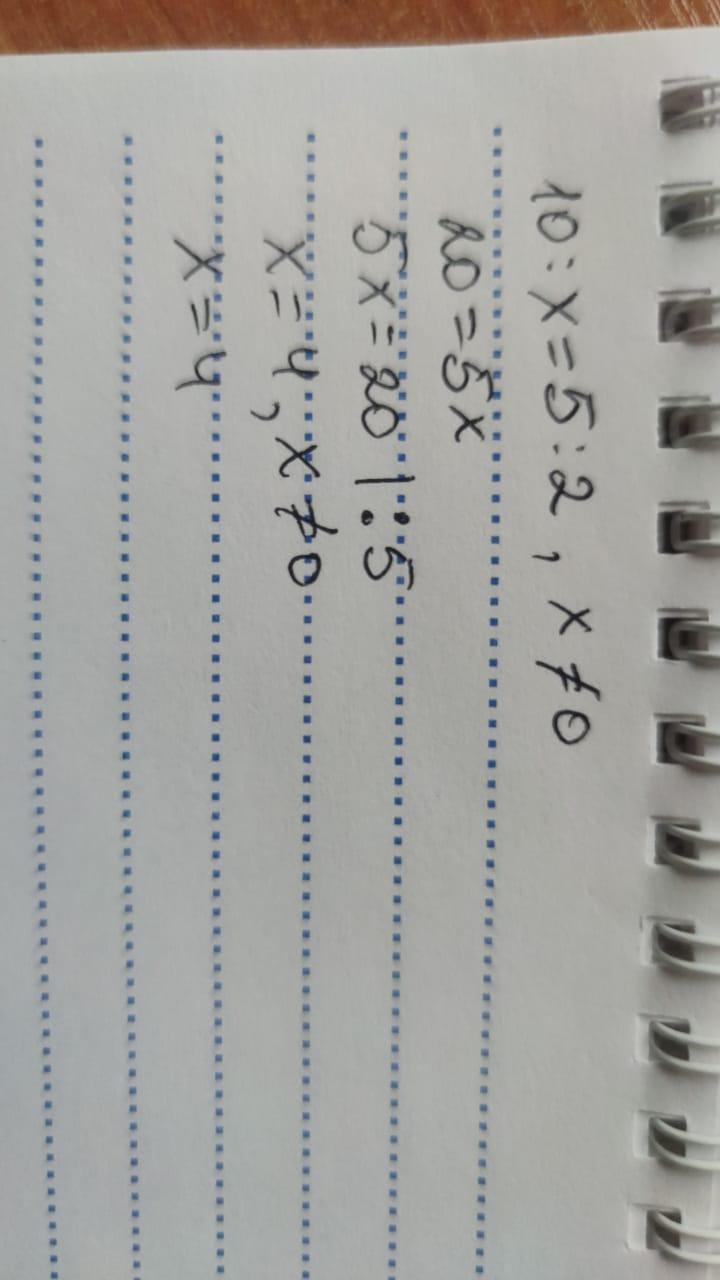 10 : x = 5 : 2 , x ≠ 0
20 = 5x
5x = 20 | : 5
x = 4 , x ≠ 0
x = 4